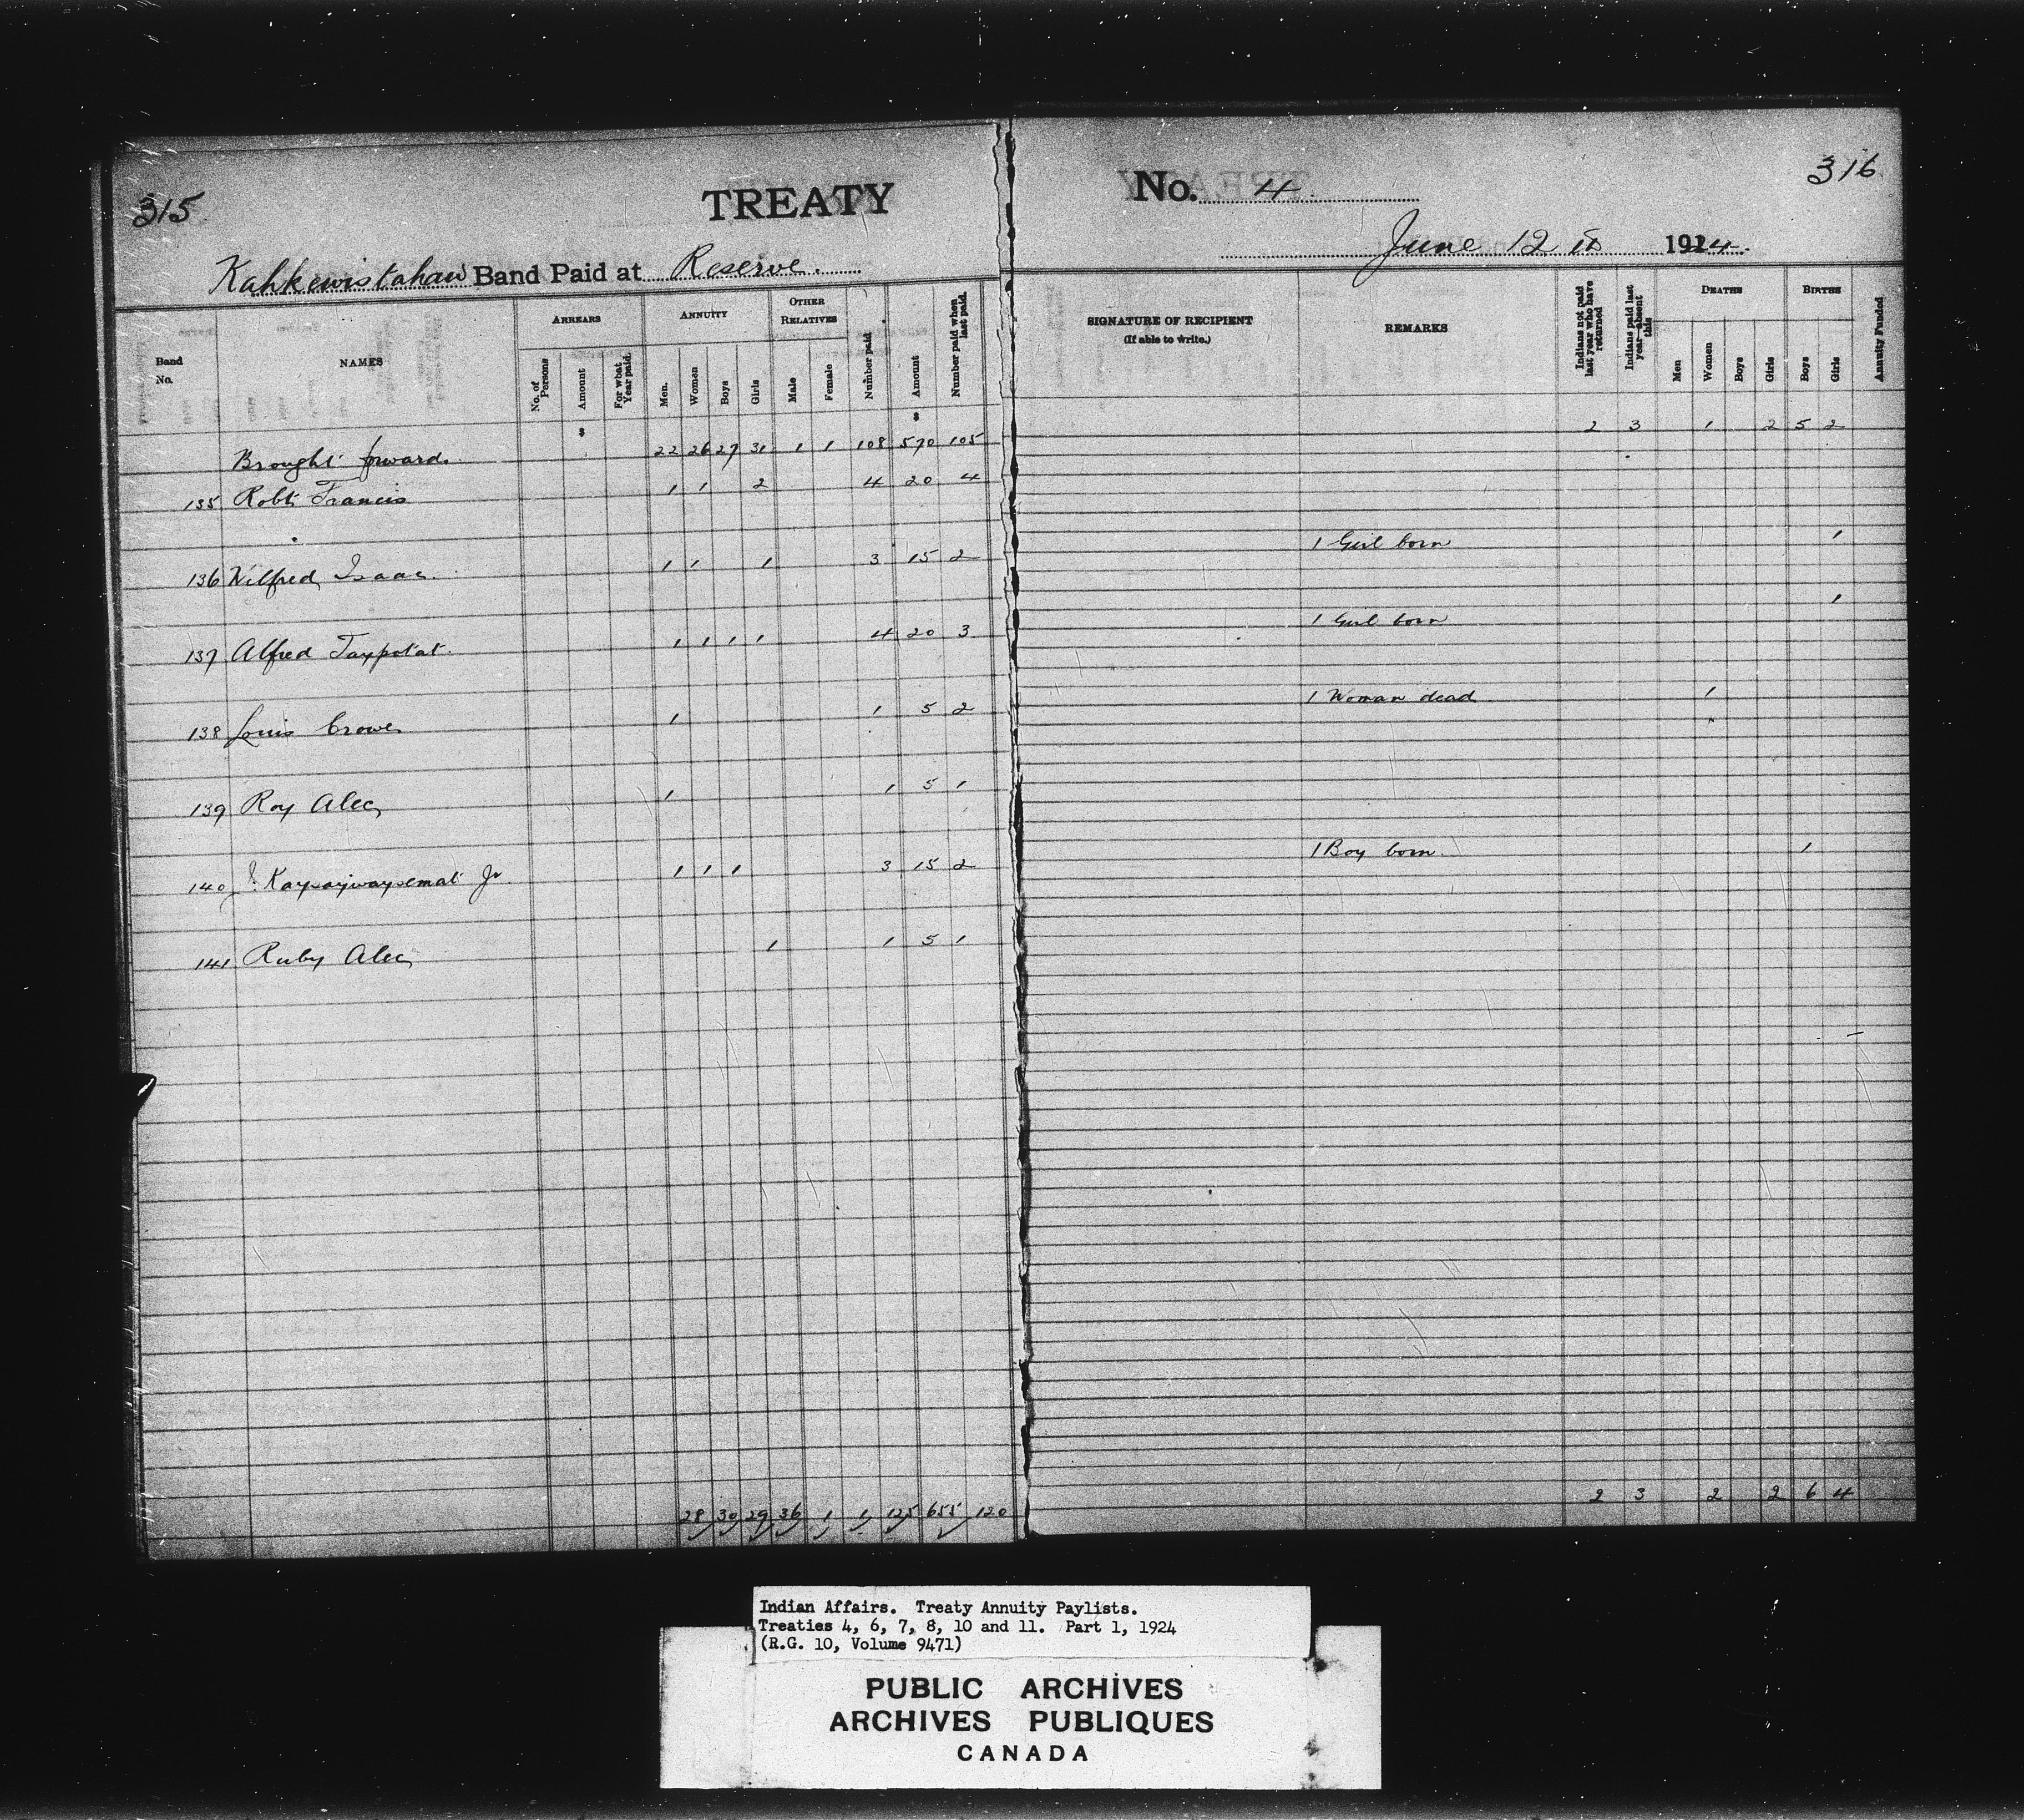 315
TREATY
Kahkewistahaw Band Paid at Reserve.
Band No.
NAMES
ARREARS
No. of Persons
Amount
For what Year paid.
ANNUITY
Men.
Women
Boys
Girls
OTHER RELATIVES
Male
Female
Number paid
Amount
Number paid when last paid.
$ $
Brought forward. 22 26 27 31 1 1 108 570 105
135 Robt Francis 1 1 2 4 20 4
136 Wilfred Isaac. 1 1 1 3 15 2
137 Alfred Taypotat. 1 1 1 1 4 20 3
138 Louis Crowe 1 1 5 2
139 Roy Alec 1 1 5 1
140 Kaysaywaysemat Jr 1 1 1 3 15 2
141 Ruby Alec 1 1 5 1
28 30 29 36 1 1 125 655 120
316
No. 4.
June 12th 1924.
SIGNATURE OF RECIPIENT
(If able to write.)
REMARKS
Indians not paid last year who have returned
Indians paid last year—absent this
DEATHS
Men
Women
Boys
Girls
BIRTHS
Boys
Girls
Annuity Funded
2 3 1 2 5 2
1 Girl born 1
1 Girl born 1
1 Woman dead 1
1 Boy born. 1
2 3 2 2 6 4
Indian Affairs. Treaty Annuity Paylists.
Treaties 4, 6, 7, 8, 10 and 11. Part 1, 1924
(R.G. 10, Volume 9471)
PUBLIC ARCHIVES
ARCHIVES PUBLIQUES
CANADA